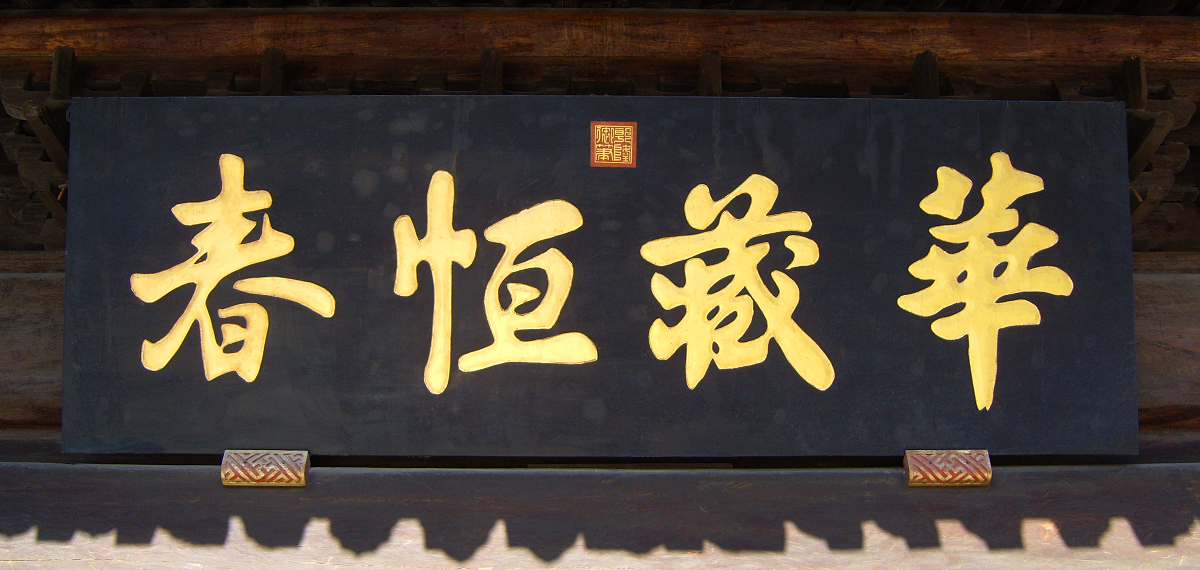 華藏恒春